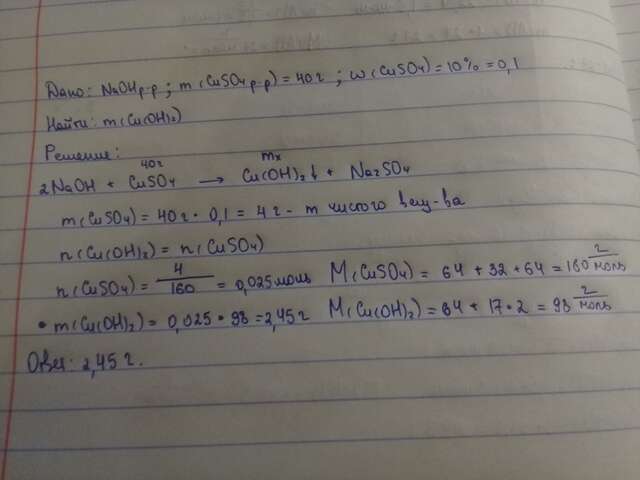 Дано: NaOH р-р ; m(CuSO₄ р-р) = 40 г ; w(CuSO₄) = 10% = 0,1
Найти: m(Cu(OH)₂)
Решение:
40 г mx
2NaOH + CuSO₄ → Cu(OH)₂↓ + Na₂SO₄
m(CuSO₄) = 40 г · 0,1 = 4 г - m чистого вещ-ва
n(Cu(OH)₂) = n(CuSO₄)
n(CuSO₄) = 4/160 = 0,025 моль M(CuSO₄) = 64 + 32 + 64 = 160 г/моль
• m(Cu(OH)₂) = 0,025 · 98 = 2,45 г M(Cu(OH)₂) = 64 + 17·2 = 98 г/моль
Ответ: 2,45 г.